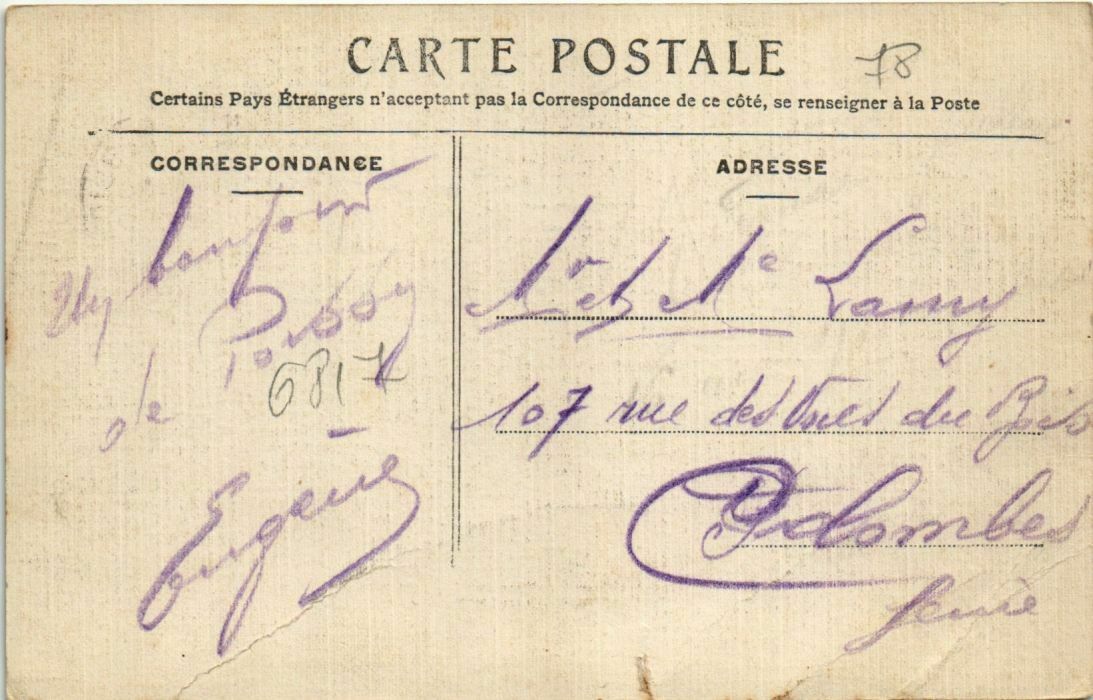 CARTE POSTALE
78
Certains Pays Étrangers n'acceptant pas la Correspondance de ce côté, se renseigner à la Poste
CORRESPONDANCE
Un bonjour
de Poissy
6817
Eugene
ADRESSE
Mr et Me Lamy
107 rue des du Bois
Colombes
Seine